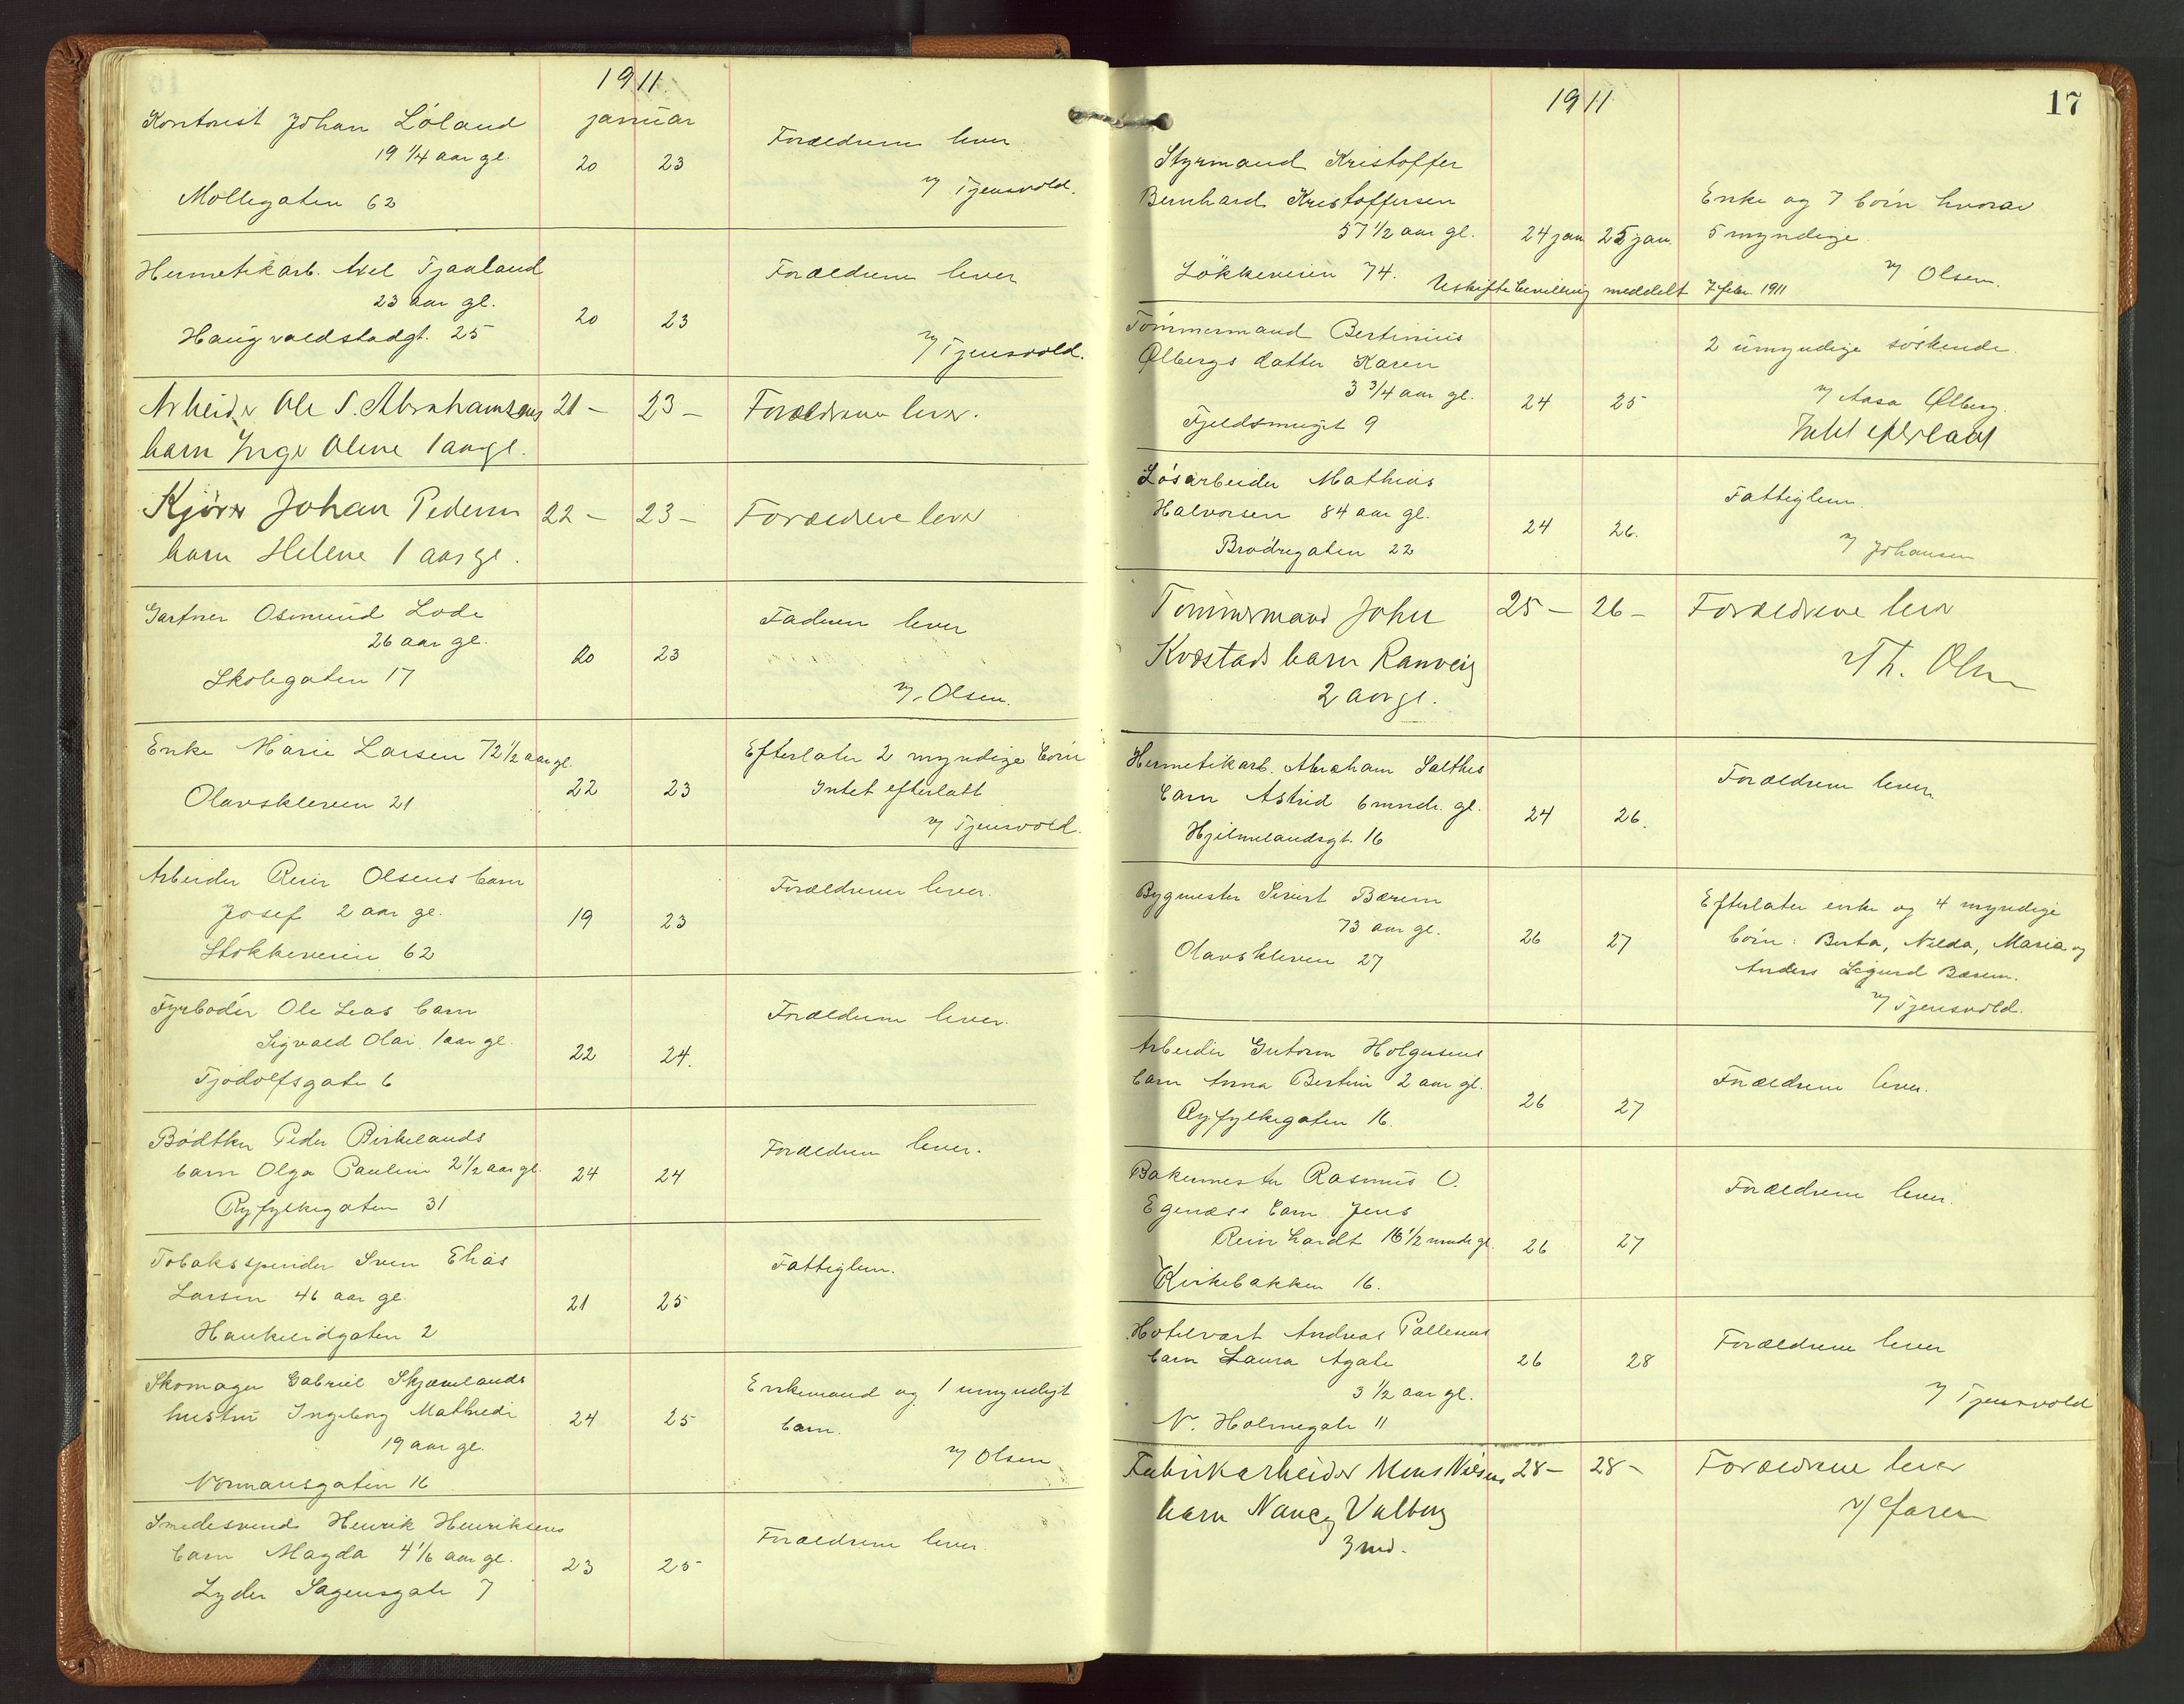 1911.
januar
Kontorist Johan Löland
19 1/4 aar gl.
Möllegaten 62
20 23
Forældrene lever
v/ Tjensvold.
Hermetikarb. Axel Tjaaland
23 aar gl.
Haugvaldstadgt. 25
20 23
Forældrene lever
v/ Tjensvold.
Arbeider Ole S. Abrahamsens 21 – 23 – Forældrene lever.
barn Inga Oline 1 aar gl.
Kjører Johan Pedersen 22 – 23 – Forældrene lever
barn Helene 1 aar gl.
Gartner Osmund Lode
26 aar gl.
Skolegaten 17
20 23
Faderen lever
v/ Olsen.
Enke Marie Larsen 72 1/2 aar gl.
Olavskleven 21
22 23
Efterlater 2 myndige börn
Intet efterlatt
v/ Tjensvold.
Arbeider Reier Olsens barn
Josef 2 aar gl.
Stokkeveien 62
19 23
Forældrene lever.
Fyrböder Ole Leas barn
Sigvald Olai 1 aar gl.
Tjodolfsgate 6
22 24.
Forældrene lever.
Bödtker Peder Birkelands
barn Olga Pauline 2 1/2 aar gl.
Ryfylkegaten 31
24 24
Forældrene lever.
Tobaksspinder Sven Elias
Larsen 46 aar gl.
Haukelidgaten 2
21 25
Fattiglem.
Skomager Gabriel Skjævelands
hustru Ingeborg Mathilde
19 aar gl.
Normansgaten 16
24 25
Enkemand og 1 umyndigt
barn.
v/ Olsen
Smedesvend Henrik Henriksens
barn Magda 4 1/6 aar gl.
Lyder Sagensgate 7
23 25
Forældrene lever.
17
1911
Styrmand Kristoffer
Bernhard Kristoffersen
57 1/2 aar gl.
Lökkeveien 74.
24 jan 25 jan.
Enke og 7 börn hvorav
5 myndige.
v/ Olsen.
Uskiftebevilling meddelt 7 febr. 1911
Tömmermand Bertinius
Ølbergs datter Karen
3 3/4 aar gl.
Fjeldsmugt 9
24 25
2 umyndige söskende.
v/ Aasa Ølberg.
Intet efterladt
Lösarbeider Mathias
Halvorsen 84 aar gl.
Brödregaten 22
24 26.
Fattiglem.
v/ Johansen
Tömmermand John 25 – 26 – Forældrene lever
Kvæstads barn Ranveig
2 aar gl.
v/ Th. Olsen
Hermetikarb. Abraham Salthes
barn Astrid 6 mndr. gl.
Hjelmelandsgt. 16
24 26.
Forældrene lever.
Bygmester Sivert Bærem
73 aar gl.
Olavskleven 27
26 27
Efterlater enke og 4 myndige
börn: Berta, Nilda, Maria og
Anders Sigurd Bærem.
v/ Tjensvold.
Arbeider Gutorm Holgersens
barn Anna Bertine 2 aar gl.
Ryfylkegaten 16.
26 27
Forældrene lever.
Bakermester Rasmus O.
Egenæss barn Jens
Reinhardt 16 1/2 mndr gl.
Kirkebakken 16.
26 27
Forældrene lever.
Hotelvært Andreas Pallesens
barn Laura Agate
3 1/2 aar gl.
N. Holmegate 11
26 28
Forældrene lever
v/ Tjensvold
Fabrikarbeider Mons Nilsens 28 – 28 – Forældrene lever
barn Nancy Valborg
3 md.
v/ faren